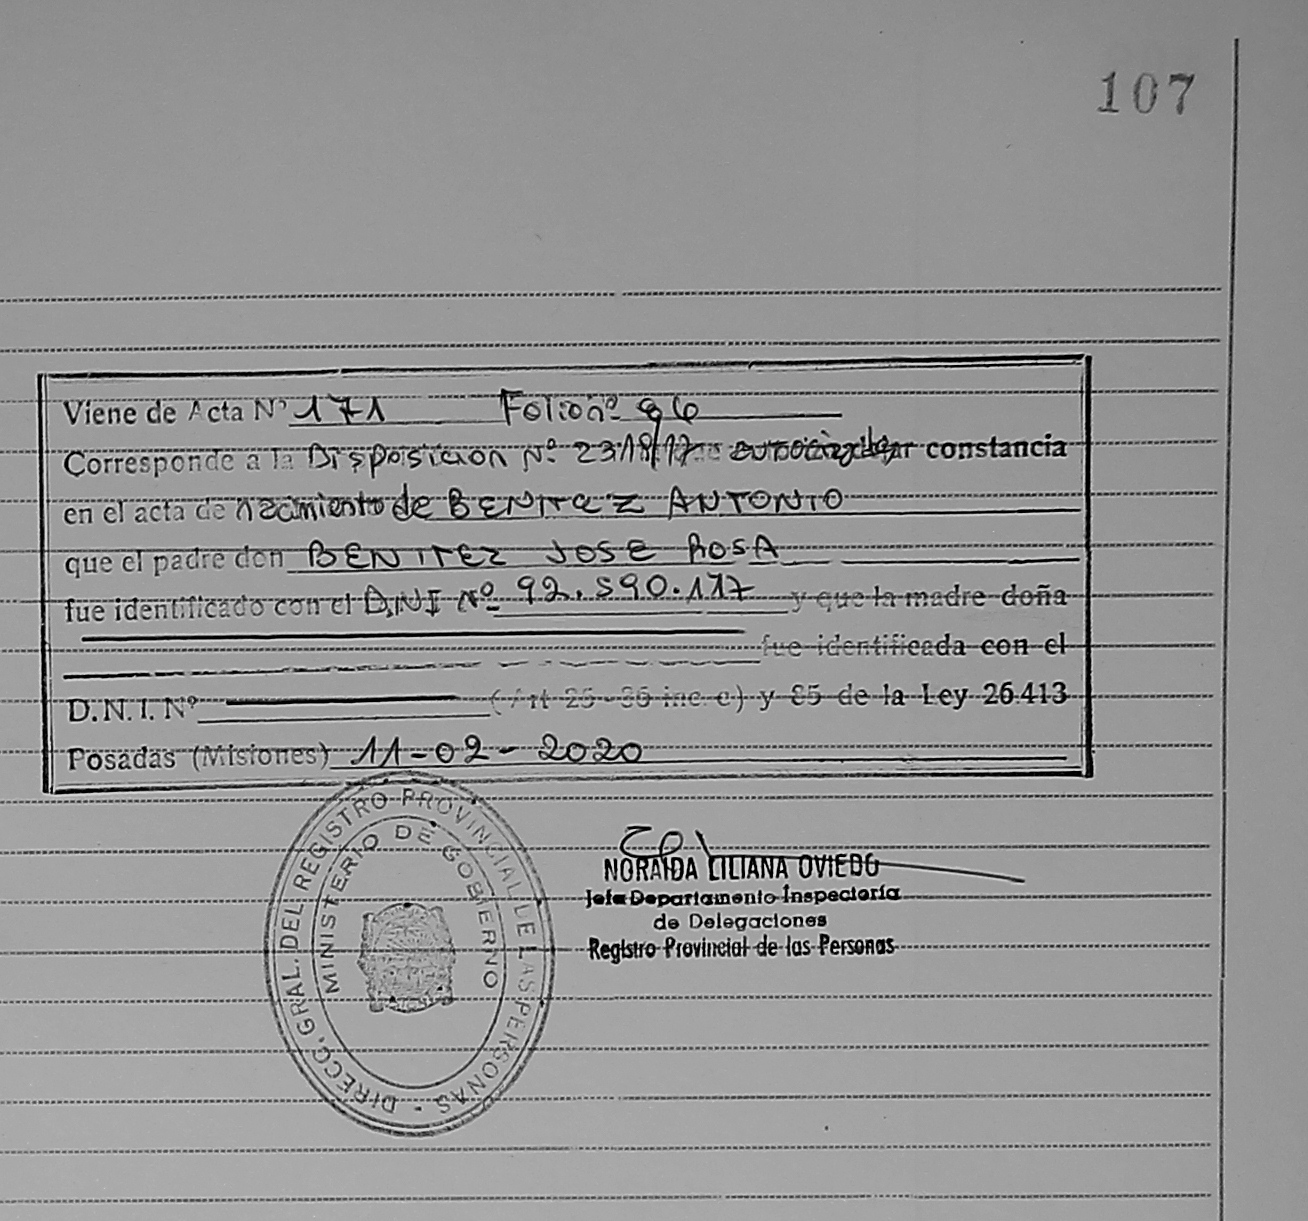 107
Viene de Acta Nº 171 Folio nº 96
Corresponde a la Disposición Nº 2318/17 constancia
en el acta de nacimiento de BENITEZ ANTONIO
que el padre don BENITEZ JOSE ROSA
fue identificado con el D.N.I Nº 92.590.117 y que la madre doña
fue identificada con el
D.N.I. Nº (Art 25 - 36 inc. c) y 85 de la Ley 26.413
Posadas (Misiones) 11-02-2020
DIRECC. GRAL. DEL REGISTRO PROVINCIAL DE LAS PERSONAS -
MINISTERIO DE GOBIERNO
NORAIDA LILIANA OVIEDO
Jefa Departamento Inspectoría
de Delegaciones
Registro Provincial de las Personas